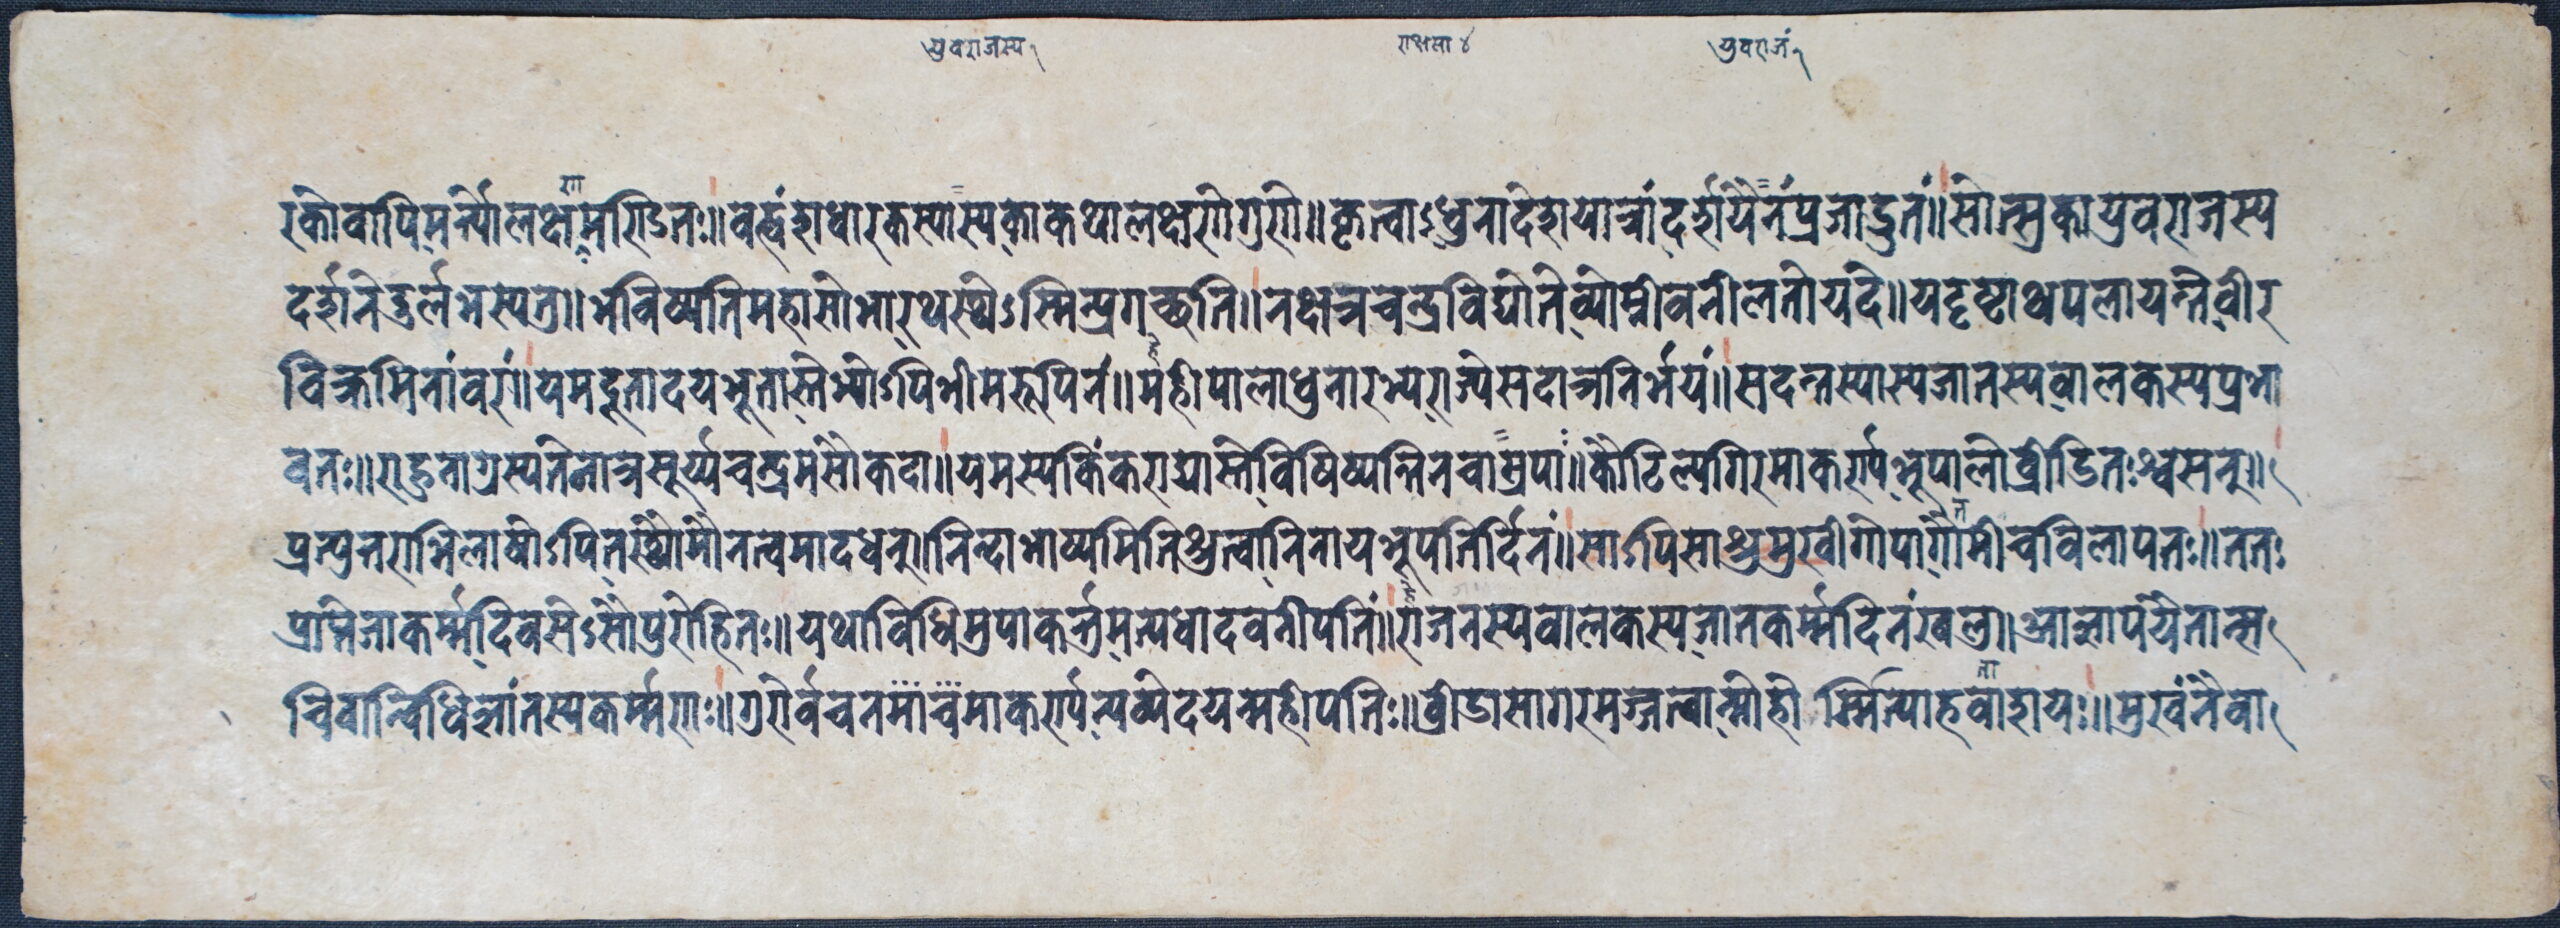 युवराजस्य१ राक्षसा ४ युवराजं१
णा
रकोवापिमर्त्यालक्षमण्डितः॥वह्वंशधारकस्यास्यकाकथालक्षणेगुणे॥कृत्वाऽधुनादेशयात्रांदर्शयैनंप्रजाद्रुतं॥सोत्सुकायुवराजस्य
दर्शनेदुर्लभस्यतु॥भविष्यतिमहासोभारथस्थेऽस्मिन्प्रगच्छति॥नक्षत्रचन्द्रविद्योतेव्योम्नीवनीलतोयदे॥यदृष्टाथपलायन्तेवीर
विक्रमिनांवराः॥यमदूतादयभूतास्तेभ्योऽपिभीमरूपिनं॥महीपालाधुनारभ्यराज्येसदात्रनिर्भयं॥सदन्तस्यास्यजातस्यवालकस्यप्रभा
वतः॥राहुनाग्रस्यतेनात्रसूर्य्यचन्द्रमसौकदा॥यमस्यकिंकराद्यास्तेविषिष्यन्तिनचाम्रपाः॥कौटिल्यगिरमाकर्ण्यभूपालोव्रीडितःश्वसन्॥
प्रत्युतराभिलाषोऽपितस्थौमौनत्वमादधन्॥निन्दाभाष्यमितिश्रुत्वानिनायभूपतिर्दिनं॥साऽपिसाश्रुमुखीगोपागौतमीचविलापतः॥ततः
प्राप्तेजाकर्म्मदिवसेऽसौपुरोहितः॥यथाविधिमुपाकर्त्तुमन्यधादवनीपतिं॥राजनस्यवालकस्यजातकर्म्मदिनंखलु॥आज्ञापययेतान्स
ता
चिवान्विधिज्ञांतस्यकर्म्मणः॥गुरोर्वचनमाचमाकर्ण्यन्यवेदयन्महीपतिः॥व्रीडासागरमज्जत्वान्मोहो र्स्मित्याहवाशयः॥मुखंनैवा